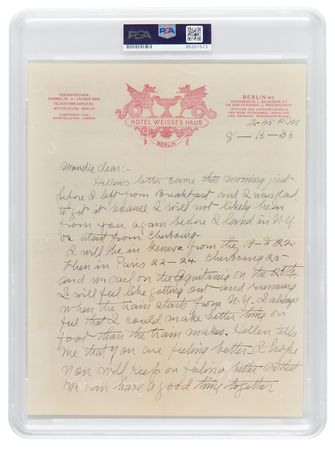 PSA PSA
85251573
HOTEL WEISSES HAUS
BERLIN
FERNSPRECHER:
BERLIN W.
5-45 P.M
8-16-36
Mandie dear:-
Hellen's letter came this morning, just
before I left from Breakfast and I was glad
to get it because I will not likely hear
from you again before I land in N.Y.
or start from Cherbourg-
I will be in Geneva from the 19- to 22-
then in Paris 22-25- Cherbourg 25-
and we sail on the Aquitania on the
I will feel like getting out and running
when the train starts from N.Y. I always
feel that I could make better time on
foot than the train makes. Hellen tells
me that you are feeling better & hope
you will keep on feeling better so that
we can have a good time together